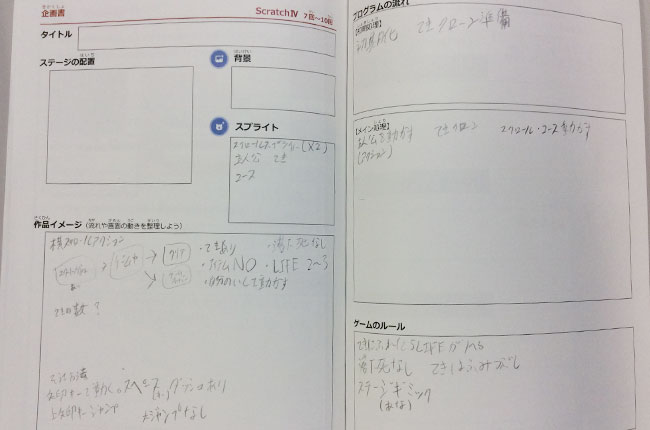 きかくしょ
企画書
Scratch Ⅳ 7回〜10回
タイトル
ステージの配置
背景
スプライト
スクロールスプライト(×2)
主人公 てき
コース
作品イメージ(流れや画面の動きを整理しよう)
横スクロールアクション
クリア
・てきあり
・落下死なし
・アイテムNO ・LIFE 2〜3
・自分のいしで動かす
てきの数?
矢印キーで動く。
ダウンあり
上矢印キージャンプ
大ジャンプなし
プログラムの流れ
初期化 てきクローン準備
【メイン処理】
主人公を動かす てきクローン スクロール・コース動かす
(アクション)
ゲームのルール
てきにふれたらLIFEがへる
落下死なし てきはふみつぶし
ステージギミック
(あな)